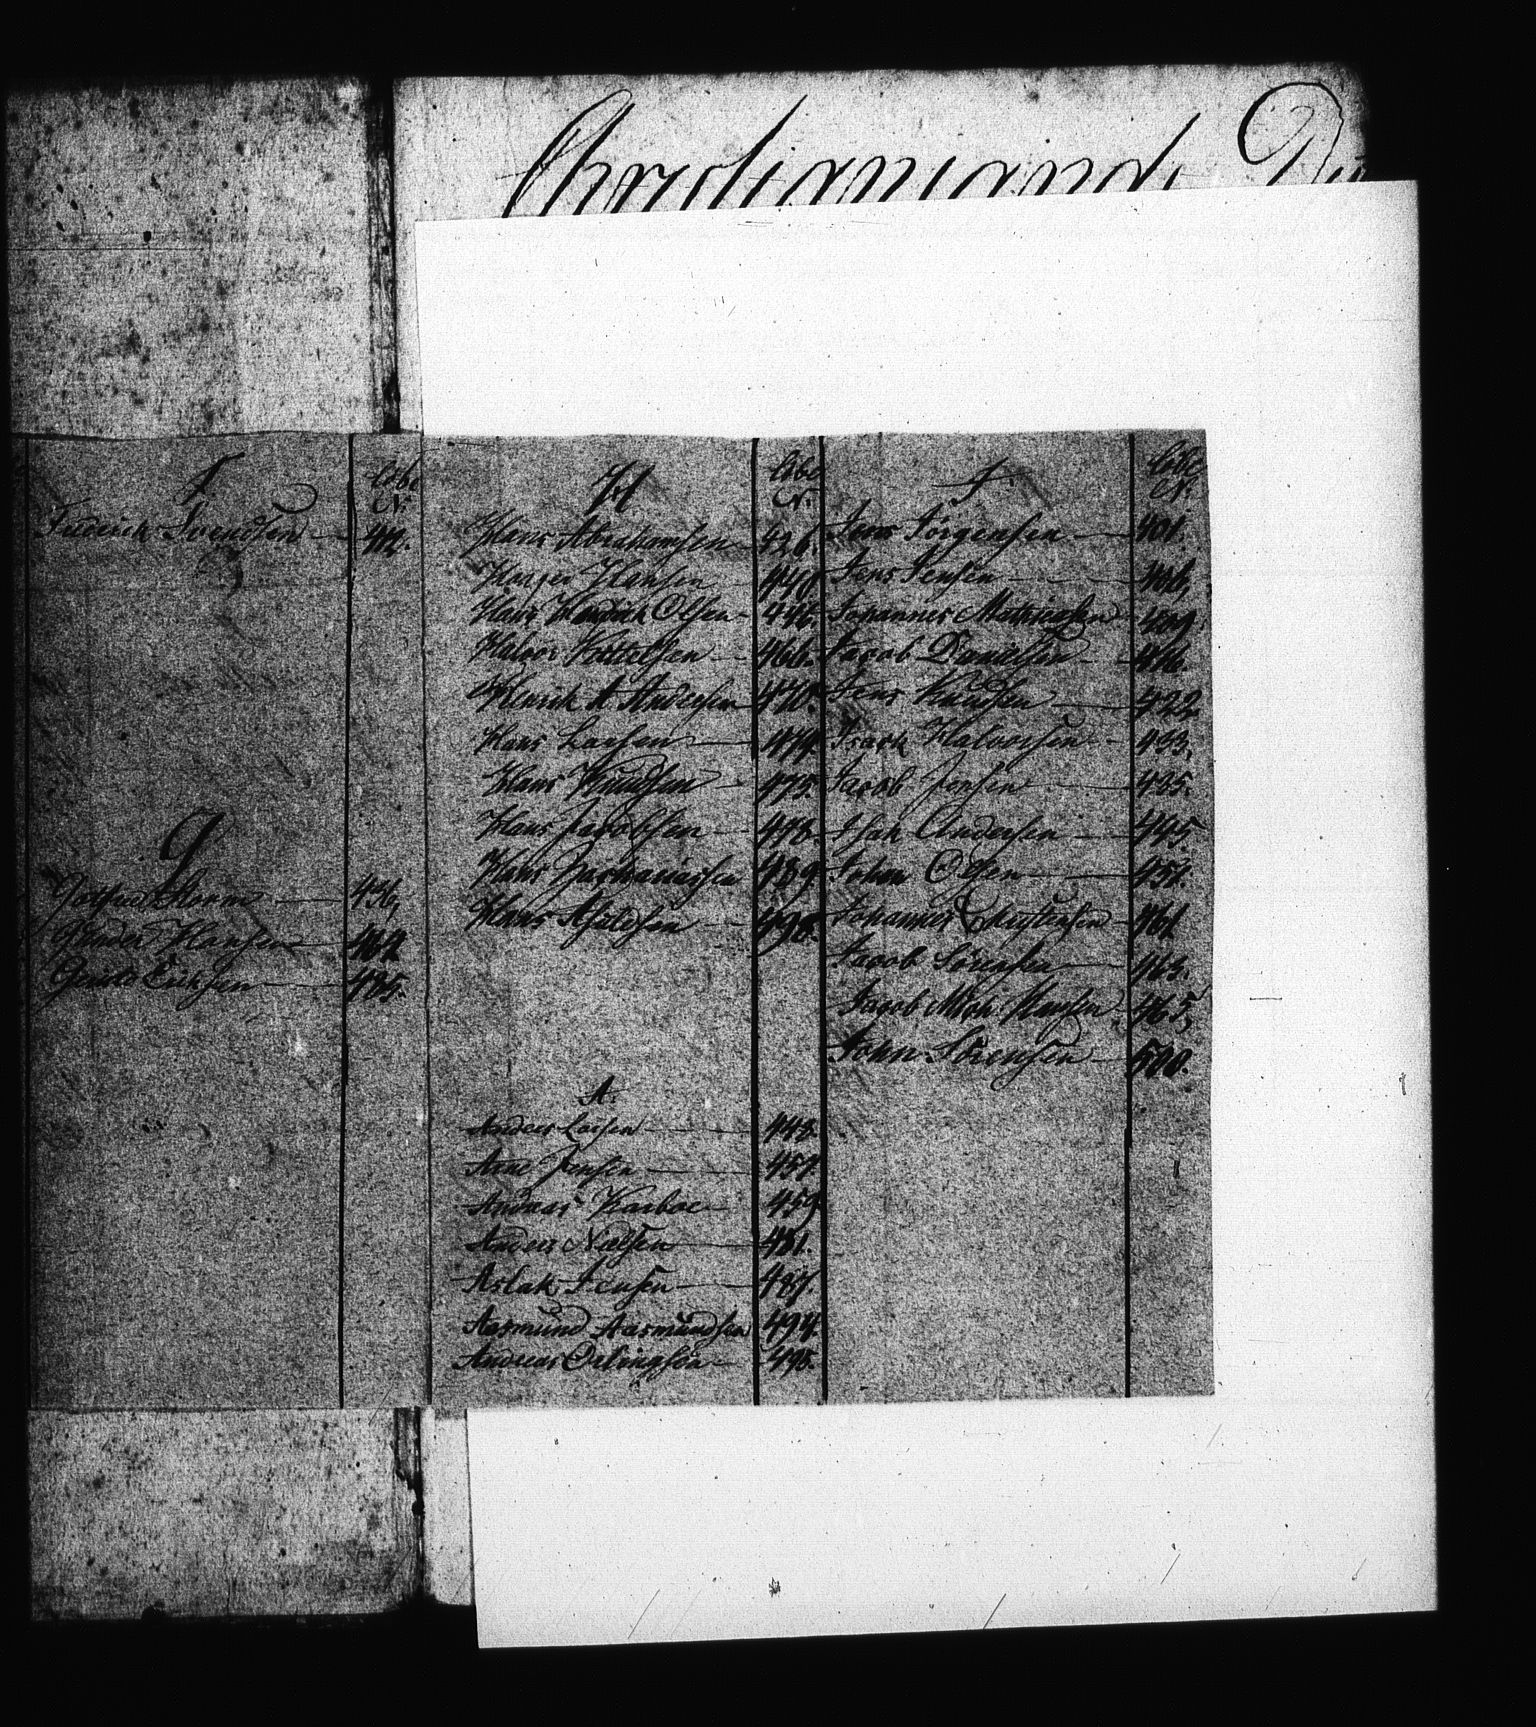 Christiansands
F. Löbe N:
Friderich Svendsen — 412.
G
Gotfried Storm — 436,
Gunder Hansen — 462
Erichsen — 485.
H Löbe N:
Hans Abrahamsen 426.
Hansen 440
Hans Hendrich Olsen - 446.
Halvor Kittelsen — 466.
Henrich A Andersen 470.
Hans Larsen — 474.
Hans Knudsen - 475.
Hans Jacobsen — 478.
Hans Zachariasen 489
Hans — 498.
A.
Anders Larsen — 448.
Arne Jensen — 457.
Andreas — 459
Anders Nielsen — 481.
Aslak Jensen — 487.
Aasmund Aasmundsen 494.
Andreas Erlingsön — 495.
J. Löbe N:
Jens Jörgensen — 401.
Jens Jensen — 406,
Johannes Mathiesen 409,
Jacob Danielsen — 416
Jens Knudsen — 422,
Isack Halvorsen — 433,
Jacob Jensen — 435.
Isak Andersen — 495.
Johan Olsen — 451.
Johannes — 461
Jacob Sörensen — 463.
Jacob Hansen 465,
John Sörensen — 500.